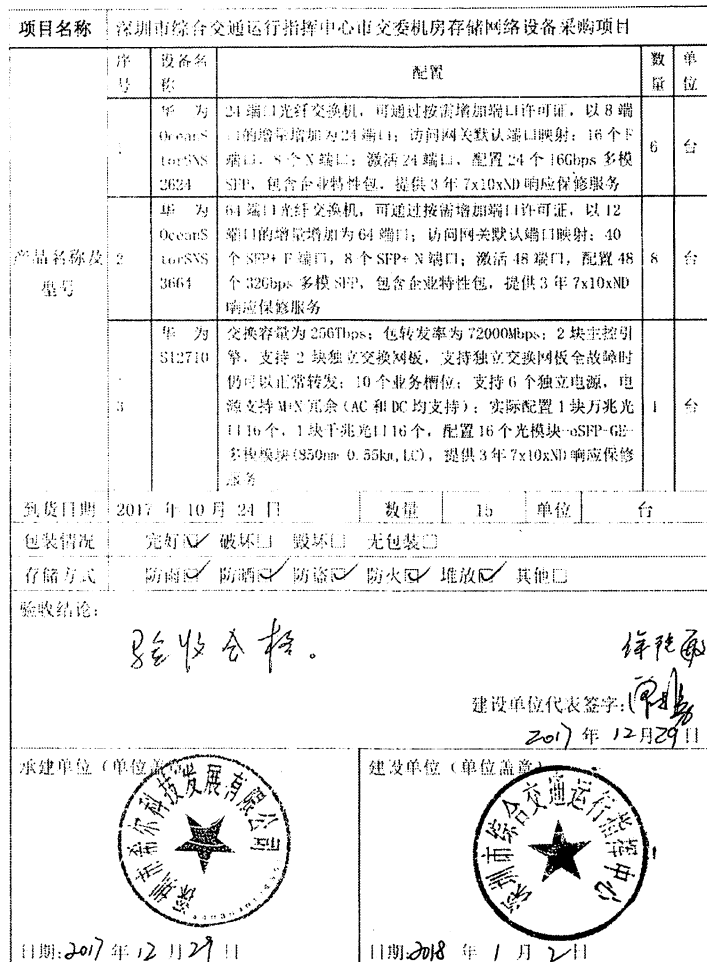 项目名称 深圳市综合交通运行指挥中心市交委机房存储网络设备采购项目
产品名称及型号
序号 设备名称 配置 数量 单位
1 华为OceanStorSNS2624
24 端口光纤交换机，可通过按需增加端口许可证，以 8 端
口的增量增加为 24 端口；访问网关默认端口映射：16 个 F
端口，8 个 N 端口；激活 24 端口，配置 24 个 16Gbps 多模
SFP，包含企业特性包，提供 3 年 7x10xND 响应保修服务
6 台
2 华为OceanStorSNS3664
64 端口光纤交换机，可通过按需增加端口许可证，以 12
端口的增量增加为 64 端口；访问网关默认端口映射：40
个 SFP+ F 端口，8 个 SFP+ N 端口；激活 48 端口，配置 48
个 32Gbps 多模 SFP，包含企业特性包，提供 3 年 7x10xND
响应保修服务
8 台
3 华为S12710
交换容量为 256Tbps；包转发率为 72000Mbps；2 块主控引
擎，支持 2 块独立交换网板，支持独立交换网板全故障时
仍可以正常转发；10 个业务槽位；支持 6 个独立电源，电
源支持 M+N 冗余（AC 和 DC 均支持）；实际配置 1 块万兆光
口 16 个，1 块千兆光口 16 个，配置 16 个光模块-eSFP-GE-
多模模块(850nm-0.55km,LC)，提供 3 年 7x10xND 响应保修
服务
1 台
到货日期 2017 年 10 月 24 日 数量 15 单位 台
包装情况 完好☑ 破坏□ 毁坏□ 无包装□
存储方式 防雨☑ 防晒☑ 防盗☑ 防火☑ 堆放☑ 其他□
验收结论：
验收合格。
建设单位代表签字：
2017 年 12月29日
承建单位（单位盖章）
深圳市希尔科技发展有限公司
日期:2017 年 12 月 29 日
建设单位（单位盖章）
深圳市综合交通运行指挥中心
日期:2018 年 1 月 2 日